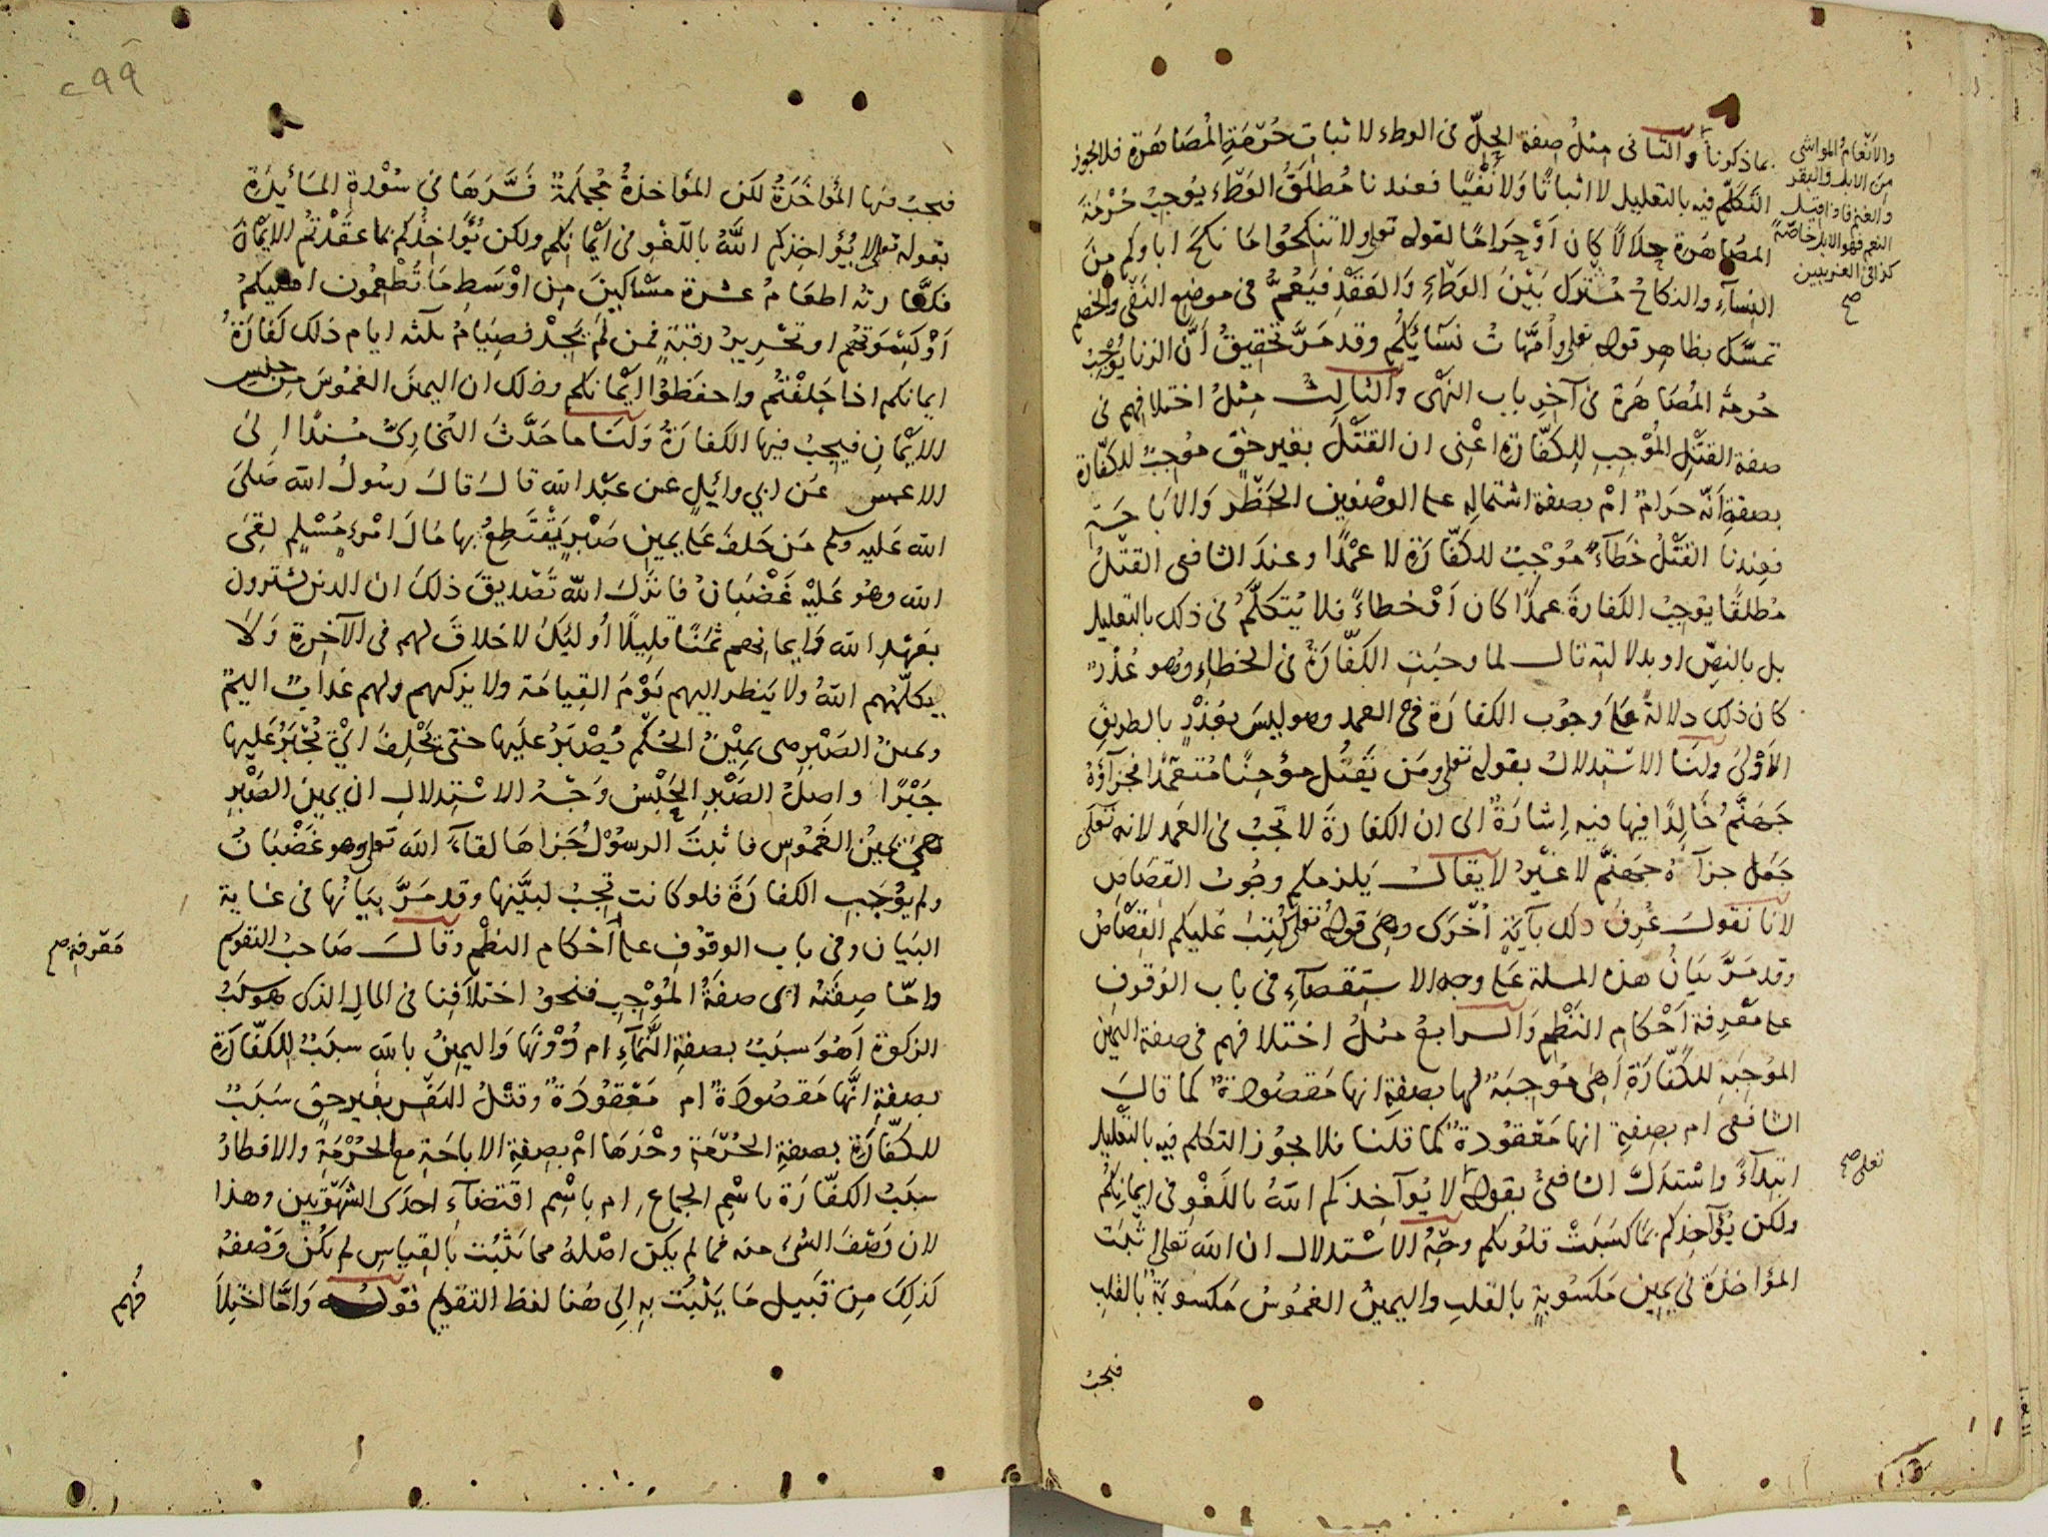 بما ذكرنا والثانى مثل صفة الحِلّ فى الوطء لاثبات حُرْمَةِ المُصَاهَرةِ فلا يجوز
التكلّم فيه بالتعليل لا اثباتًا ولا نَفْيًا فعندنا مُطلَقُ الوَطْء يُوجِبُ حُرْمَةَ
المصَاهَرة حلالًا كان اَوْ حَرَامًا لقوله تعلى ولا تنكحُوا مَا نكحَ اباوكم مِنَ
النِسآءِ والنكاحُ مُشترك بَيْنَ الوَطْءِ وَالعَقْدِ فيَعُمُّ فى موضع النَفْى والخصم
تمسَّك بظاهِر قوله تعلى وأمَّهاتُ نسَآئِكُم وقد مَرَّ تحقيقُ أَنَّ الزنا يُوجِبُ
حُرمةَ المُصَاهَرة فى آخِر باب النَهْى والثالث مِثلُ اختلافهم فى
صفة القَتْلِ المُوْجِبِ لِلكَفّارَةِ اعْنِى ان القَتْلَ بغير حَقٍّ مُوْجِبٌ للكفّارة
بصفةِ أَنّه حرَامٌ امْ بصفة اشتماله على الوصْفَين الحَظْرِ وَالاِبَاحَةِ
فعِندنا القَتْلُ خطَآءً مُوْجِبٌ للكَفّارَةِ لا عمْدًا وعندَ الشافعى القتْلُ
مُطلقًا يُوجِبُ الكفارةَ عمدًا كان اَوْ خطاءً فلا يُتكلَّمُ فى ذلك بالتعليل
بل بالنصِّ او بدلالته قال لما وجبَتِ الكفّارَةُ فى الخطاءِ وهو عُذْرٌ
كان ذلك دلالةً عَلَى وجُوبِ الكفارَةِ فى العمد وهو ليسَ بعُذْرٍ بالطريق
الأوْلىَ ولَنَا الاستِدلالُ بقوله تعلى ومَن يَقتُل مؤمِنًا مُتعمّدًا فجزآؤهُ
جَهَنّمُ خالِدًا فيها فيه إشارَةٌ الى ان الكفارةَ لا تجبُ فى العَمد لانه تعَلَى
جَعَل جزآءهُ جهنّمَ لا غَيْرُ لا يقال يَلزمكم وجُوبُ القصَاصِ
لانا نَقول عُرِفَ ذلك بآيَةٍ أُخْرَى وهى قوله تعلى كُتِبَ عَليكم القِصَاصُ
وقد مَرَّ بيَانُ هذه المسلة عَلَى وجه الاستِقصَآءِ فى باب الوُقوفِ
على مَعْرِفةِ اَحْكام النَظْمِ والرابعُ مثلُ اختلافهم فى صفة اليَمين
المُوجِبَةِ للكَفّارَةِ أَهِىَ مُوْجِبَةٌ لها بصفةِ انها مَقصُودةٌ كما قالَ
الشافعى ام بصفةِ انها مَعْقُودةٌ كما قلنا فلا يجُوز التكلم فيه بالتعليل
ابتِدآءً واسْتدَلَّ الشافعىُّ بقوله لا يُوآخِذكم اللهُ باللَغْوِ فى ايمانِكُم
ولكن يُؤآخِذكم بما كسَبَتْ قلُوبكم وجْهُ الاسْتدلال ان الله تعلى أثبتَ
المؤاخذة فى يمِين مَكسُوبةٍ بالقلبِ واليمينُ الغمُوسُ مَكسوبَةٌ بالقلبِ
فيجبُ
والانعامُ المواشى
من الابل والبقر
والغنم فاذا قيل
النعم فهو الابل خاصّةً
كذا فى الغريبين
صح
تعلى صح
٢٩٩
فيجبُ فيها المُؤاخَذَةُ لكن المؤاخذةُ مُجمَلَةٌ فسَّرَها فى سُوْرة المَائِدَة
بقوله تعلى لا يُؤَاخِذكم اللهُ باللَغْو فى أيْمَانِكم ولكن يُؤَاخِذُكم بما عقَدْتمُ الايْمَانَ
فكفّارته اطعَامُ عشرة مسَاكينَ مِن اوْسَطِ مَا تُطْعِمُون اهليكمُ
أوْ كِسْوَتهُم او تحْرِيرُ رقبَةٍ فمن لَمْ يجِدْ فصِيَامُ ثلثة ايام ذلك كَفارَةُ
ايمانكم اذا حَلفْتُم واحفَظوْا ايْمانكم وذلك ان اليمينَ الغمُوسَ مِن جنس
الايْمَانِ فيجِبُ فيها الكفارَةُ وَلَنَا ما حَدَّثَ البُخارِىُّ مُسْندًا إلىَ
الاعمس عَن ابى وائلٍ عن عَبْد الله قال قال رسُولُ الله صَلىَ
الله عَليه وسلم مَن حَلفَ عَلى يمينِ صَبْرٍ يَقْتَطِعُ بها مَالَ امْرِءٍ مُسْلِمٍ لقِىَ
الله وهُو عَليْهِ غَضْبَانُ فانزلَ اللهُ تَصْديقَ ذلكَ ان الذين يشترون
بعَهْدِ الله وَايمانهم ثمَنًا قلِيلًا أولئِكَ لا خَلاقَ لهم فى الآخرةِ وَلا
يكلّمُهم اللهُ ولا يَنظر اليهم يَوْمَ القِيامَة ولا يزكيهم ولهم عَذابٌ اليمٌ
ويمينُ الصَبْرِ هى يمِيْنُ الحُكْم يُصْبَرُ عليَها حتى يَحْلِفَ اىْ يُجْبَرُ عَليها
جَبْرًا واصلُ الصَبْرِ الحَبْسُ وَجْهُ الاسْتِدلالِ ان يمِينَ الصَبْرِ
هىَ يمينُ الغَمُوس فاثبتَ الرسوْلُ جَزاهَا لقاءَ الله تعلى وهو غضْبَانُ
ولم يوْجِبِ الكفارَةَ فلو كانت تجبُ لبيَّنها وقد مَرَّ بيَانُها فى غاية
البَيان وفى باب الوقوْفِ على أَحْكام النظْمِ وقالَ صَاحبُ التقوِيم
وامّا صِفَتُه اى صفَةُ المُوْجِبِ فنحْوُ اختلافِنا فى المالِ الذى هو سَبَبُ
الزكوة أهُوَ سبَبٌ بصفةِ النَّمَآءِ ام دُوْنَها وَاليمِينُ بالله سبَبٌ للكَفّارَةِ
بصفةِ انَّها مَقصُودَةٌ ام مَعْقُودَةٌ وقتْلُ النفْسِ بغَيرِ حقٍّ سَبَبٌ
للكفّارَةِ بصفة الحُرْمَةِ وحْدَهَا امْ بصِفَةِ الاباحَةِ مع الحُرْمَةِ والافطارُ
سبَبُ الكفّارَة باسْمِ الجماع ام باسْم اقتضَآءِ احدَى الشهْوَتَين وهذا
لان وَصْفَ الشىء منه فما لم يكن اصْلهُ مما يَثبُت بالقِياسِ لم يكُنْ وَصْفهُ
كَذلِكَ مِن قَبيل مَا يَثْبُتُ بهِ إلى هُنا لفظ التقويم قوله وَامَّا اختِلا
مَعْرِفةِ صح
فُهم